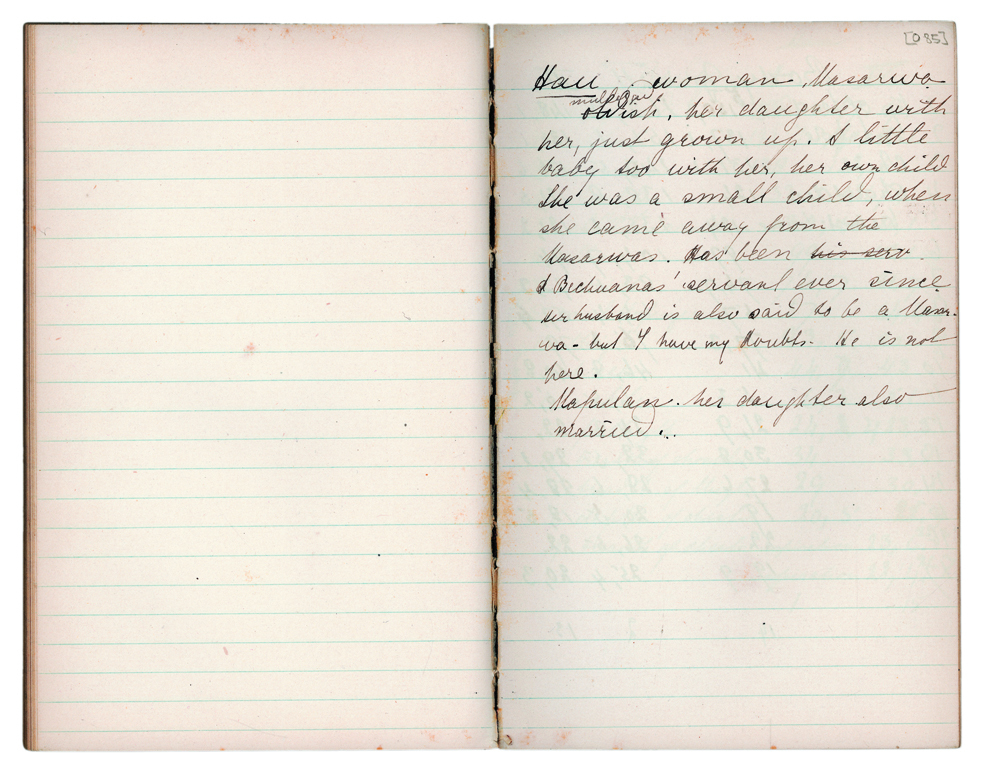 [O 85]
Hau woman Masarwa
middle aged
oldish, her daughter with
her, just grown up. A little
baby too with her, her own child
She was a small child, when
she came away from the
Masarwas. Has been his serv
A Bechuanas' servant ever since
Her husband is also said to be a Masar-
wa - but I have my doubts. He is not
here.
her daughter also
married..